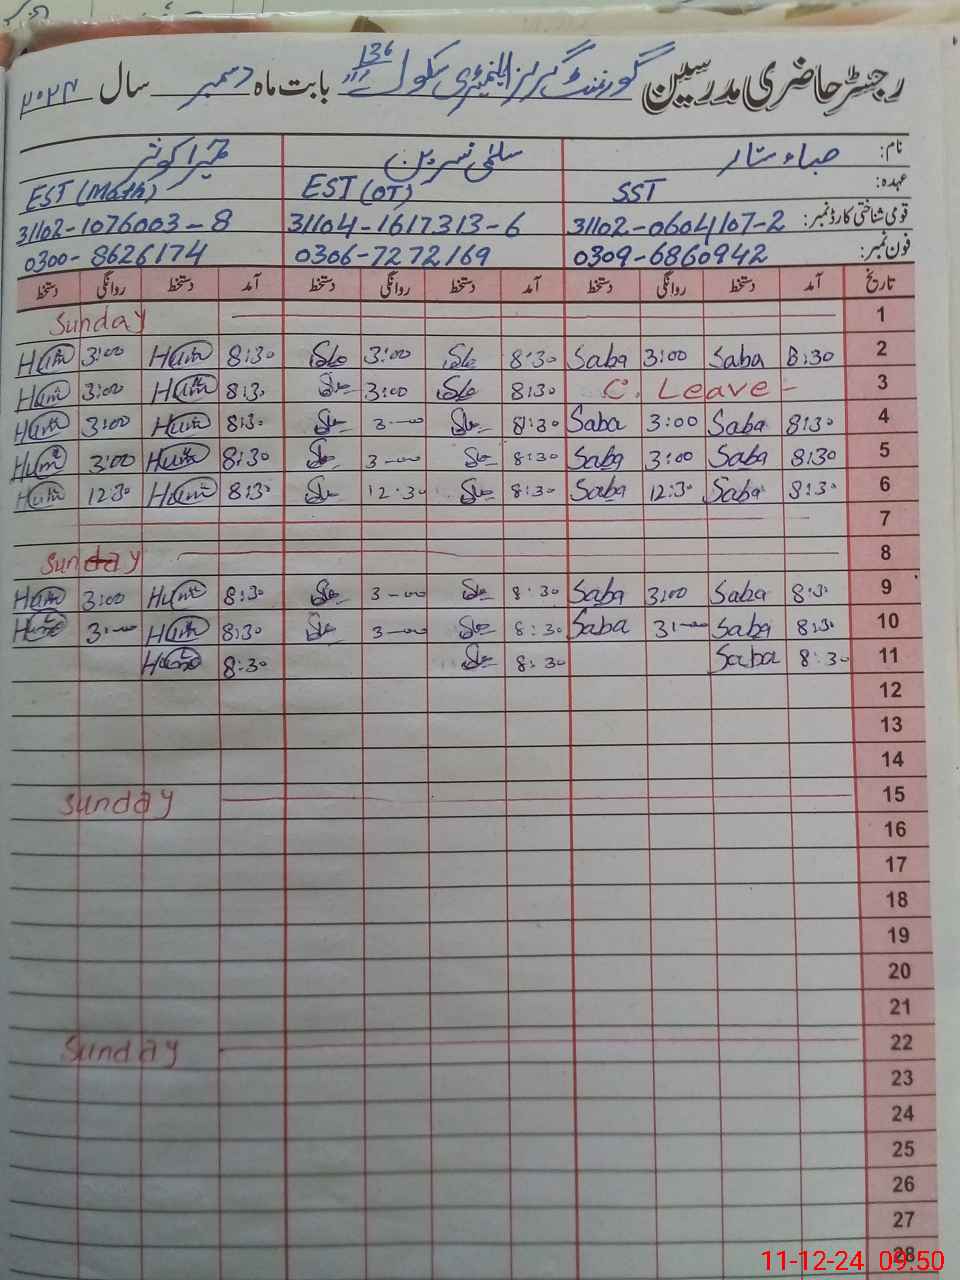 رجسٹر حاضری مدرسین گورنمنٹ گرلز ایلیمنٹری سکول 136 بابت ماہ دسمبر سال ۲۰۲۴
نام: صباء ستار سلمٰی نسرین حمیرا کوثر
عہدہ: SST EST (OT) EST (Math)
قومی شناختی کارڈ نمبر: 31102-0604107-2 31104-1617313-6 31102-1076003-8
فون نمبر: 0309-6860942 0306-7272169 0300-8626174
تاریخ آمد دستخط روانگی دستخط آمد دستخط روانگی دستخط آمد دستخط روانگی دستخط
Sunday 1
Hum 3:00 Hum 8:30 3:00 8:30 Saba 3:00 Saba 8:30 2
Hum 3:00 Hum 8:30 3:00 8:30 C. Leave - 3
Hum 3:00 Hum 8:30 3-00 8:30 Saba 3:00 Saba 8:30 4
Hum 3:00 Hum 8:30 3-00 8:30 Saba 3:00 Saba 8:30 5
Hum 12:30 Hum 8:30 12:30 8:30 Saba 12:30 Saba 8:30 6
7
Sunday 8
Hum 3:00 Hum 8:30 3-00 8:30 Saba 3:00 Saba 8:30 9
Hum 3:00 Hum 8:30 3-00 8:30 Saba 3:00 Saba 8:30 10
Hum 8:30 8:30 Saba 8:30 11
12
13
14
Sunday 15
16
17
18
19
20
21
Sunday 22
23
24
25
26
27
28
11-12-24 09:50